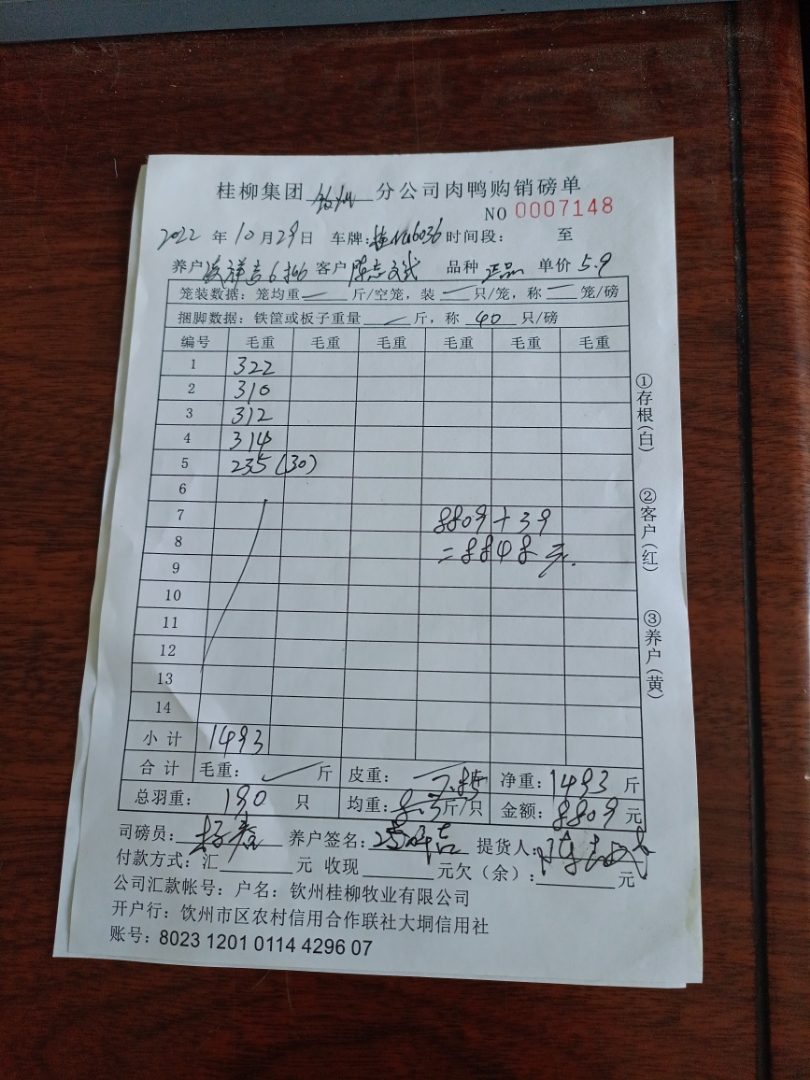 桂柳集团 钦州 分公司肉鸭购销磅单
NO 0007148
2022 年 10 月 29 日 车牌: 6036 时间段: 至
养户 客户 陈志 品种 正品 单价 5.9
笼装数据: 笼均重 — 斤/空笼, 装 — 只/笼, 称 — 笼/磅
捆脚数据: 铁筐或板子重量 — 斤, 称 40 只/磅
编号 毛重 毛重 毛重 毛重 毛重 毛重
1 322
2 310
3 312
4 314
5 235 (30)
6
7 8809+39
8 =8848元.
9
10
11
12
13
14
小计 1493
合计 毛重: 斤 皮重: 净重: 1493 斤
总羽重: 190 只 均重: 斤/只 金额: 8809 元
司磅员: 养户签名: 提货人:
付款方式: 汇 元 收现 元欠(余): 元
公司汇款帐号: 户名: 钦州桂柳牧业有限公司
开户行: 饮州市区农村信用合作联社大垌信用社
账号: 8023 1201 0114 4296 07
①存根(白)
②客户(红)
③养户(黄)